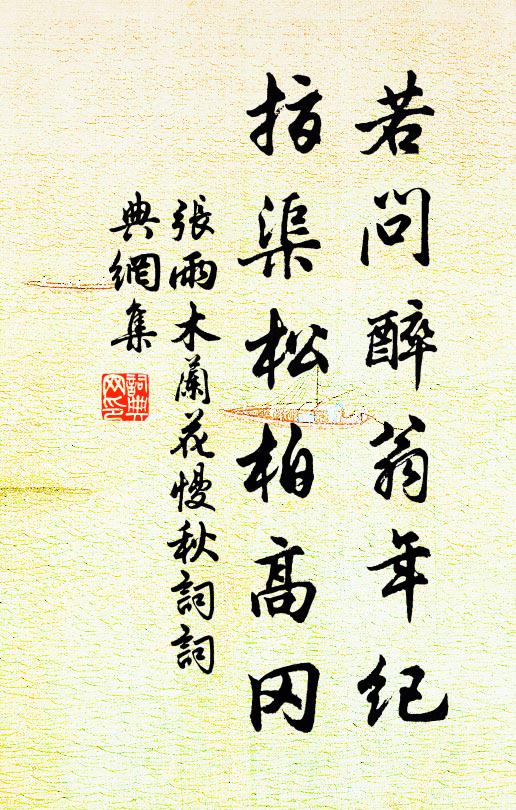 若問醉翁年紀
指渠松柏高冈
張雨木蘭花慢秋詞詞
典網集
詞典
网印